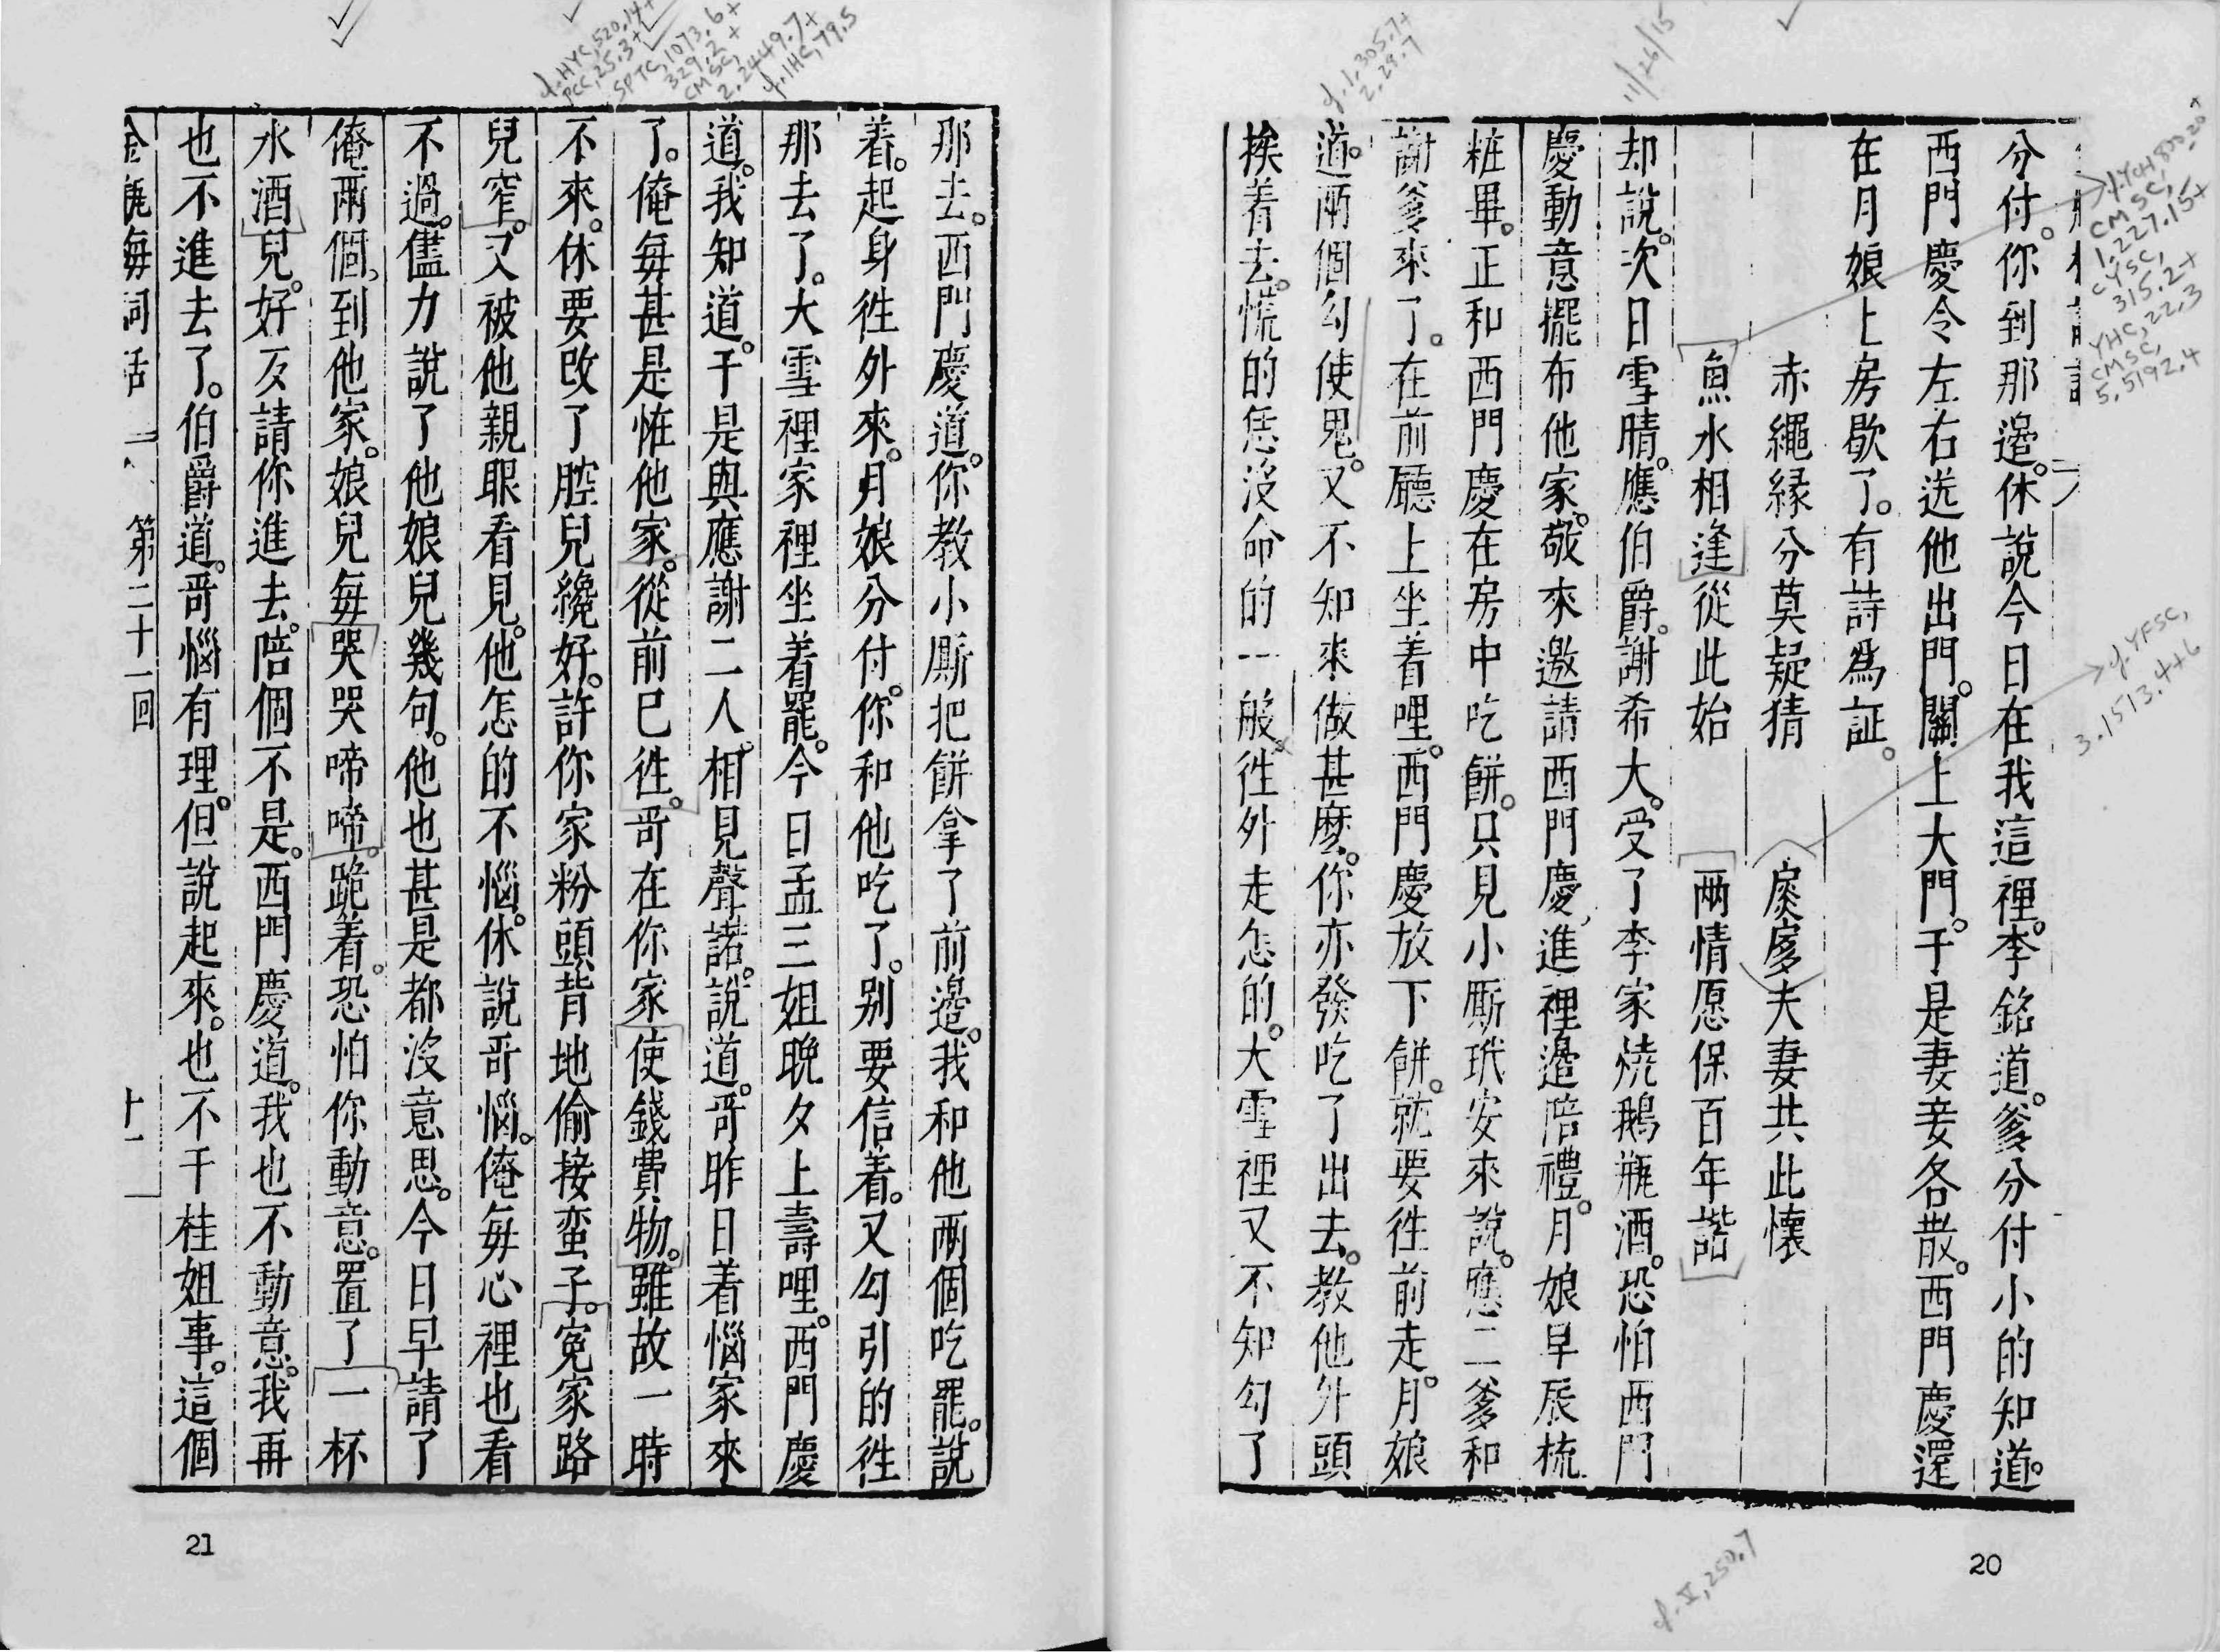 分付。你到那邉。休說今日在我這裡。李銘道。爹分付小的知道。
西門慶令左右送他出門。關上大門。于是妻妾各散。西門慶還
在月娘上房歇了。有詩為証。
赤繩緣分莫疑猜
扊扅夫妻共此懷
魚水相逢從此始
兩情愿保百年諧
却說。次日雪晴。應伯爵。謝希大。受了李家燒鵝瓶酒。恐怕西門
慶動意擺布他家。敬來邀請西門慶進裡邉陪禮。月娘早辰梳
粧畢。正和西門慶在房中吃餅。只見小厮玳安來說。應二爹和
謝爹來了。在前廳上坐着哩。西門慶放下餅。就要徃前走。月娘
道。兩個勾使鬼。又不知來做甚麽。你亦發吃了出去。教他外頭
挨着去。慌的恁沒命的一般。徃外走怎的。大雪裡又不知勾了
那去。西門慶道。你教小厮把餅拿了前邉。我和他兩個吃罷。說
着。起身徃外來。月娘分付。你和他吃了。别要信着。又勾引的徃
那去了。大雪裡家裡坐着罷。今日孟三姐晚夕上壽哩。西門慶
道。我知道。于是與應謝二人。相見聲諾。說道。哥昨日着惱家來
了。俺每甚是恠他家。從前已徃。哥在你家使錢費物。雖故一時
不來。休要改了腔兒纔好。許你家粉頭背地偷接蛮子。寃家路
兒窄。又被他親眼看見。他怎的不惱。休說哥惱。俺每心裡也看
不過。儘力說了他娘兒幾句。他也甚是都沒意思。今日早請了
俺兩個。到他家。娘兒每哭哭啼啼。跪着。恐怕你動意。置了一杯
水酒兒。好歹請你進去。陪個不是。西門慶道。我也不動意。我再
也不進去了。伯爵道。哥惱有理。但說起來。也不干桂姐事。這個
金瓶梅詞話 第二十一回 十一
21
20
11/26/15